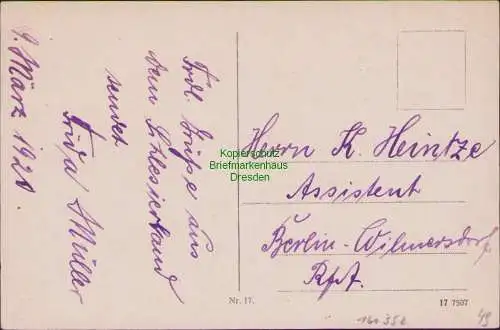 9. März 1921
Frdl. Grüße aus
dem Schlesierland
sendet
Frida Müller
Herrn K. Heintze
Assistent
Berlin-Wilmersdorf
Kopierschutz
Briefmarkenhaus
Dresden
Nr. 17.
17 7507
49